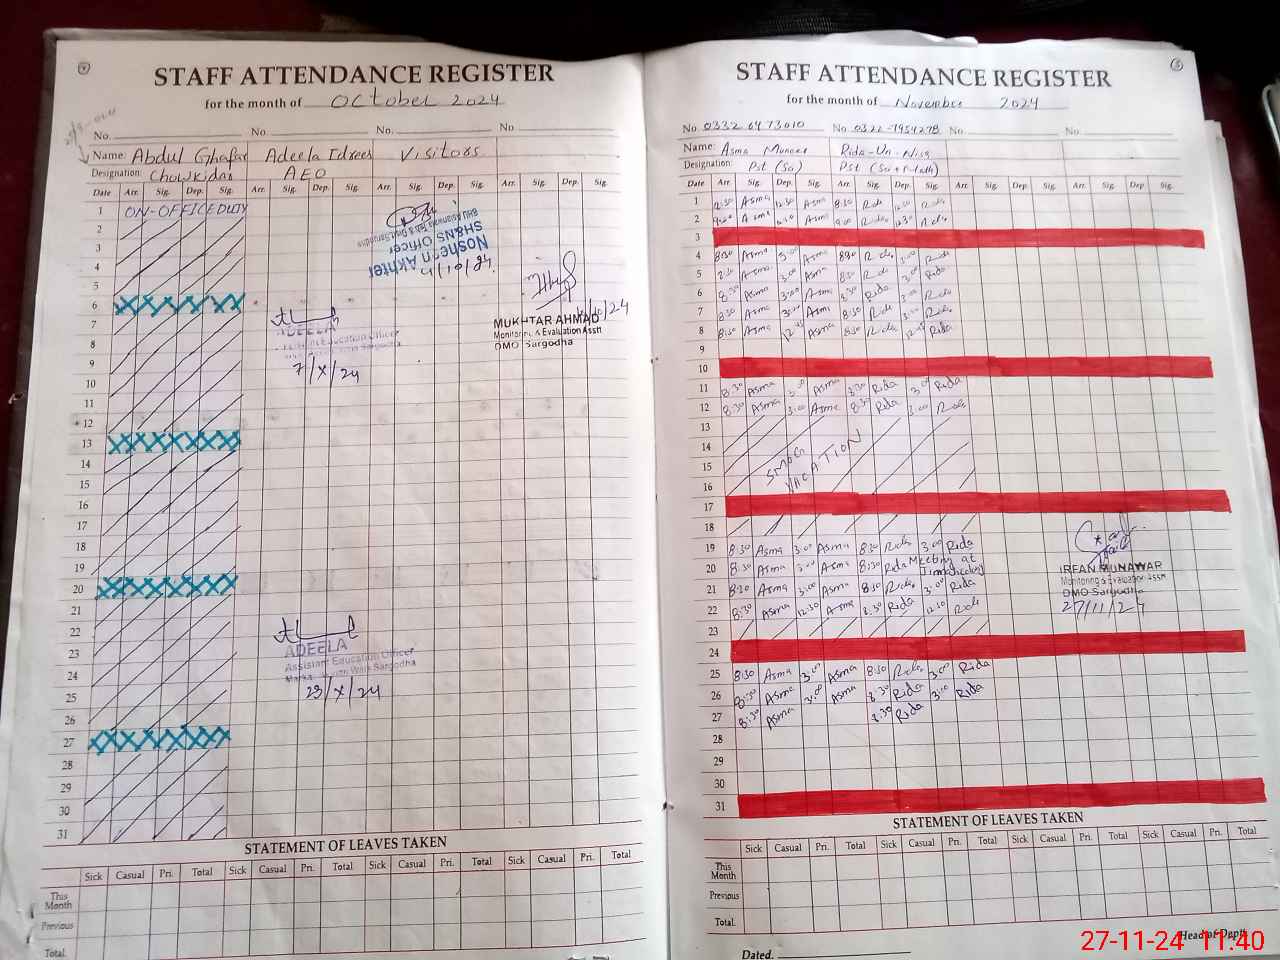 STAFF ATTENDANCE REGISTER
for the month of October 2024
No. No. No. No.
Name: Abdul Ghafar Adeela Idrees Visitors
Designation: Chowkidar AEO
Date Arr. Sig. Dep. Sig. Arr. Sig. Dep. Sig. Arr. Sig. Dep. Sig. Arr. Sig. Dep. Sig.
1 ON-OFFICE DUTY
2
3
4
5
6
7
8
9
10
11
12
13
14
15
16
17
18
19
20
21
22
23
24
25
26
27
28
29
30
31
Noshern Akhter
SH&NS Officer
4/10/24
MUKHTAR AHMAD
Monitoring & Evaluation Asstt
DMO Sargodha
ADEELA
Education Officer
Sargodha
7/X/24
ADEELA
Assistant Education Officer
Sargodha
23/X/24
STATEMENT OF LEAVES TAKEN
Sick Casual Pri. Total Sick Casual Pri. Total Sick Casual Pri. Total
This Month
Previous
Total.
STAFF ATTENDANCE REGISTER
for the month of November 2024
No. 0332 6473010 No. 0322-7954278 No. No.
Name: Asma Muneer Rida-Un-Nisa
Designation: Pst (So) Pst
Date Arr. Sig. Dep. Sig. Arr. Sig. Dep. Sig. Arr. Sig. Dep. Sig. Arr. Sig. Dep. Sig.
1 8:30 Asma 12:30 Asma 8:30 Rida 12:30 Rida
2 Asma Asma Rida Rida
3
4 8:30 Asma 3:00 Asma 8:30 Rida 3:00 Rida
5 8:30 Asma 3:00 Asma 8:30 Rida 3:00 Rida
6 8:30 Asma 3:00 Asma 8:30 Rida 3:00 Rida
7 8:30 Asma 3:00 Asma 8:30 Rida 3:00 Rida
8 8:30 Asma Asma 8:30 Rida Rida
9
10
11 8:30 Asma 3:00 Asma 8:30 Rida 3:00 Rida
12 8:30 Asma 3:00 Asma 8:30 Rida 3:00 Rida
13
14
15 SMOG
16 VACATION
17
18
19 8:30 Asma 3:00 Asma 8:30 Rida 3:00 Rida
20 8:30 Asma 3:00 Asma 8:30 Rida Meeting at
21 8:30 Asma 3:00 Asma 8:30 Rida 3:00 Rida
22 8:30 Asma 12:30 Asma 8:30 Rida 12:30 Rida
23
24
25 8:30 Asma 3:00 Asma 8:30 Rida 3:00 Rida
26 8:30 Asma 3:00 Asma 8:30 Rida 3:00 Rida
27 8:30 Asma 8:30 Rida
28
29
30
31
IRFAN MUNAWAR
Monitoring & Evaluation Asstt
DMO Sargodha
27/11/24
STATEMENT OF LEAVES TAKEN
Sick Casual Pri. Total Sick Casual Pri. Total Sick Casual Pri. Total
This Month
Previous
Total.
Head of Deptt
Dated.
27-11-24 11:40